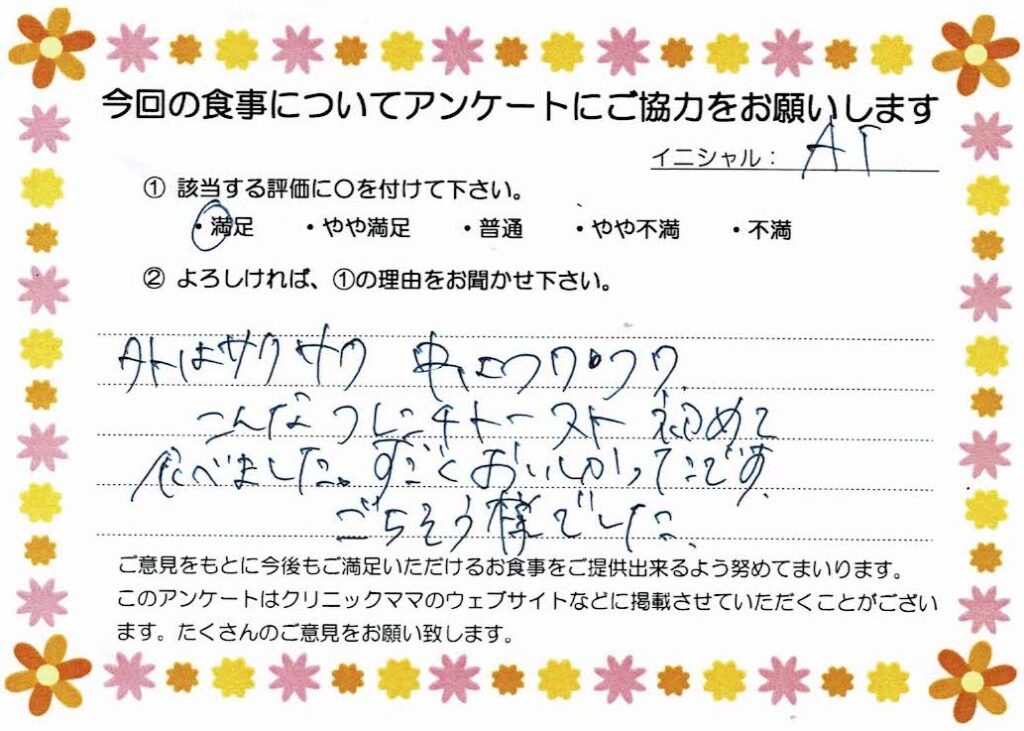 今回の食事についてアンケートにご協力をお願いします
イニシャル： AT
① 該当する評価に〇を付けて下さい。
・満足 ・やや満足 ・普通 ・やや不満 ・不満
② よろしければ、①の理由をお聞かせ下さい。
外はサクサク 中はフワフワ
こんなフレンチトースト初めて
食べました。すごくおいしかったです。
ごちそう様でした。
ご意見をもとに今後もご満足いただけるお食事をご提供出来るよう努めてまいります。
このアンケートはクリニックママのウェブサイトなどに掲載させていただくことがござい
ます。たくさんのご意見をお願い致します。